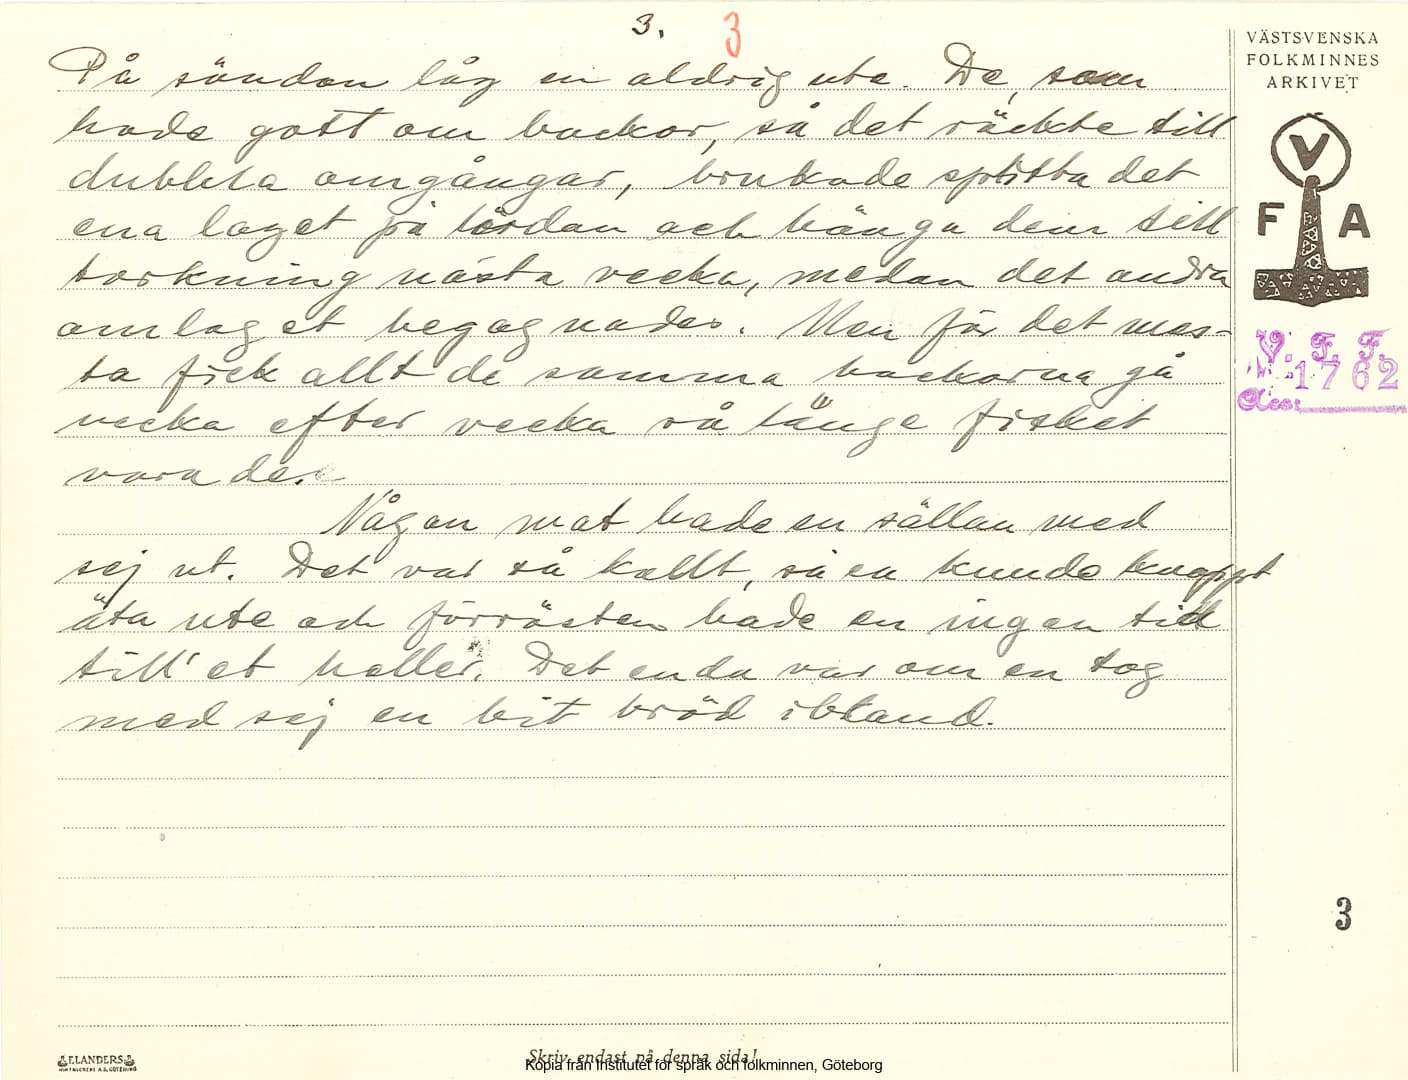 3. 3
På söndan låg en aldrig ute. De, som
hade gott om backor, så det räckte till
dubbla omgångar, brukade splitta det
ena laget på lördan och hänga dem till
torkning nästa vecka, medan det andra
omlaget begagnades. Men för det mes-
ta fick allt de samma backorna gå
vecka efter vecka så länge fisket
varade.
Någon mat hade en sällan med
sej ut. Det var så kallt, så en kunde knappt
äta ute och förrästen hade en ingen tid
till'et heller. Det enda var om en tog
med sej en bit bröd ibland.
VÄSTSVENSKA
FOLKMINNES
ARKIVET
V
F A
V. F. F.
1762
Acc.
3
ELANDERS
Skriv endast på denna sida!
Kopia från Institutet för språk och folkminnen, Göteborg